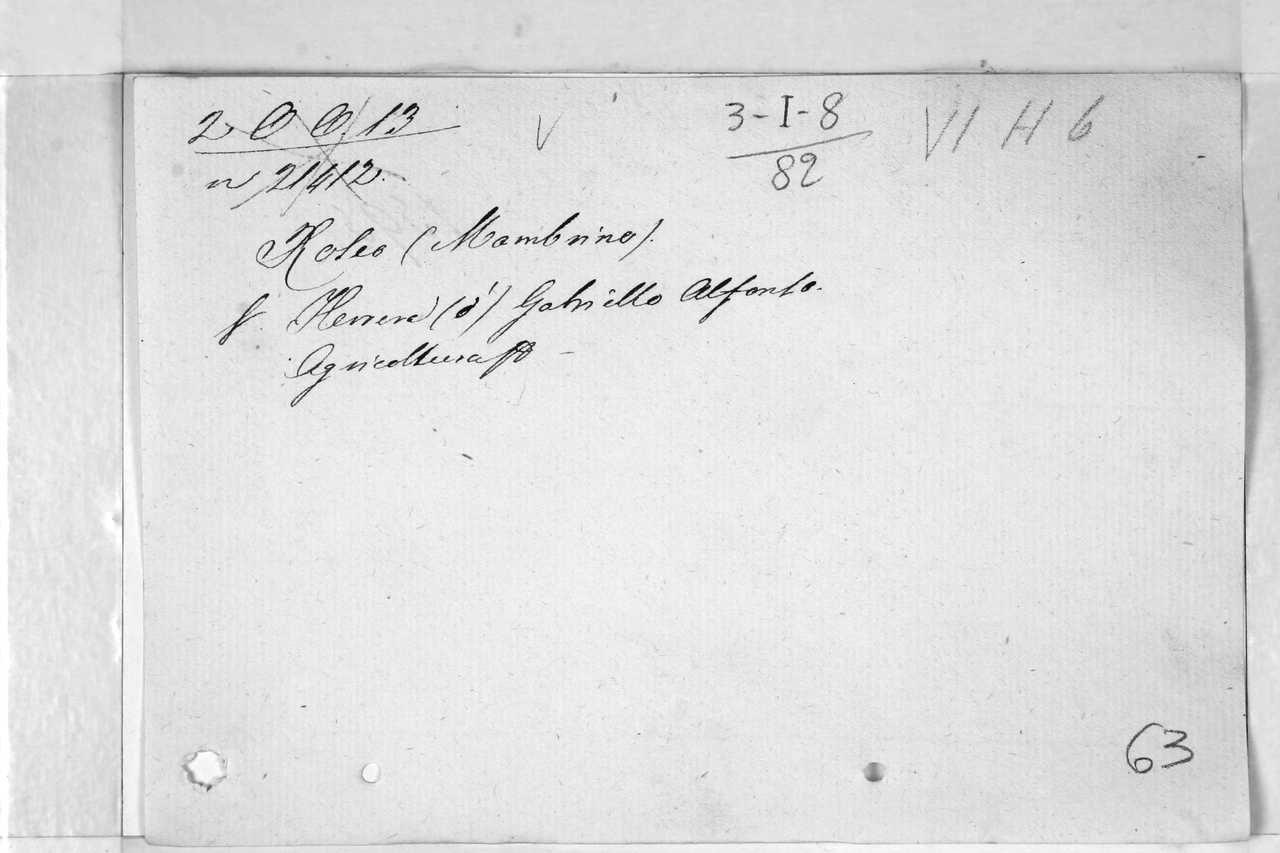 2 0 0 13
n 21412.
3-I-8
82
VI H 6
Roseo (Mambrino).
f. Herrera (d') Gabriello Alfonso.
Agricoltura
63